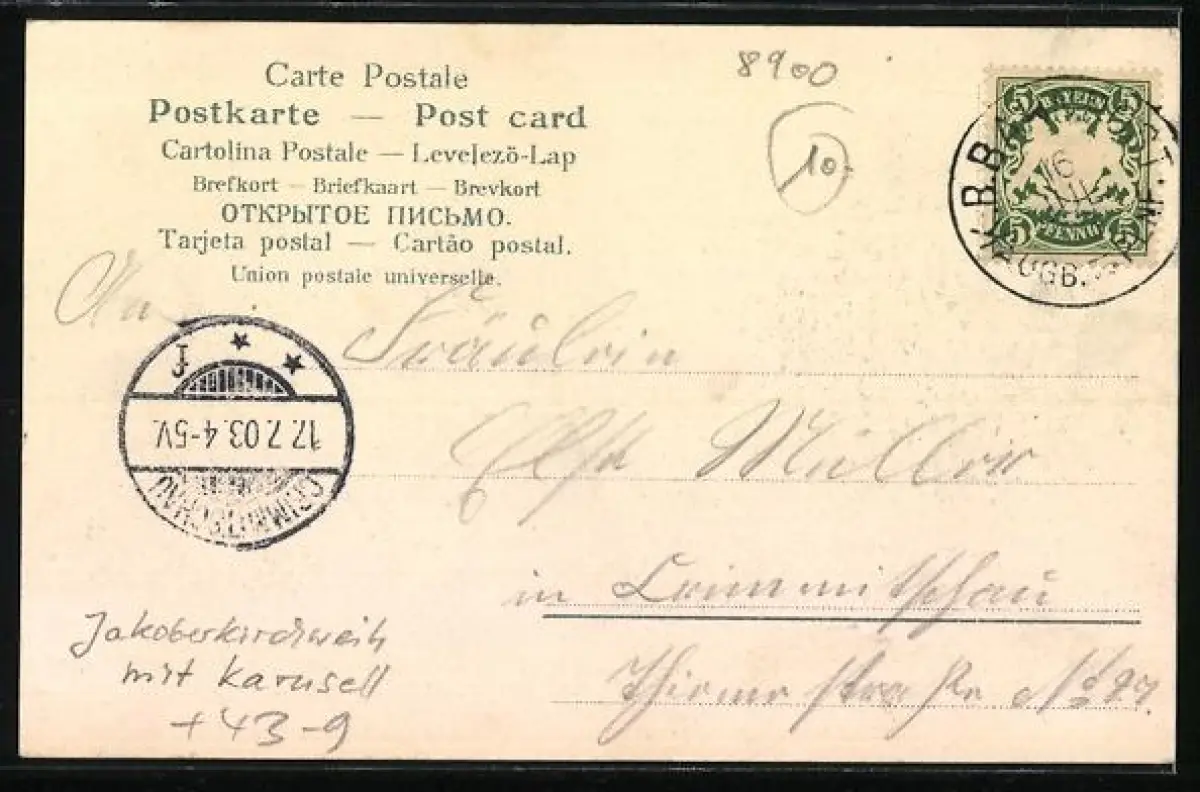 8900
Carte Postale
Postkarte — Post card
Cartolina Postale — Levelező-Lap
Brefkort — Briefkaart — Brevkort
ОТКРЫТОЕ ПИСЬМО.
Tarjeta postal — Cartão postal.
Union postale universelle.
10.-
5 BAYERN 5
5 PFENNIG 5
K.B.B
16
AUGB.
An
Fräulein
Müller
in Crimmitschau
straße No 27.
17.7.03.4-5V.
CRIMMITSCHAU
Jakoberkirchweih
mit Karusell
+43-9